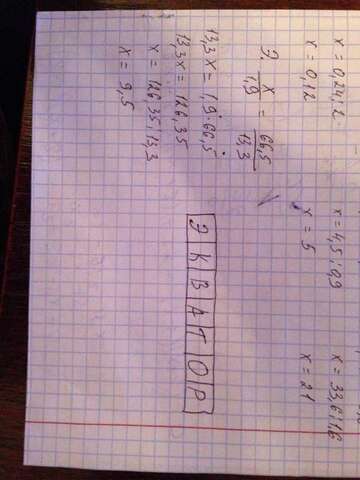 x = 0,24:2 x = 4,5:0,9 x = 33,6:1,6
x = 0,12 x = 5 x = 21
Э. x/1,9 = 66,5/13,3
13,3x = 1,9·66,5
13,3x = 126,35
x = 126,35:13,3
x = 9,5
ЭКВАТОР